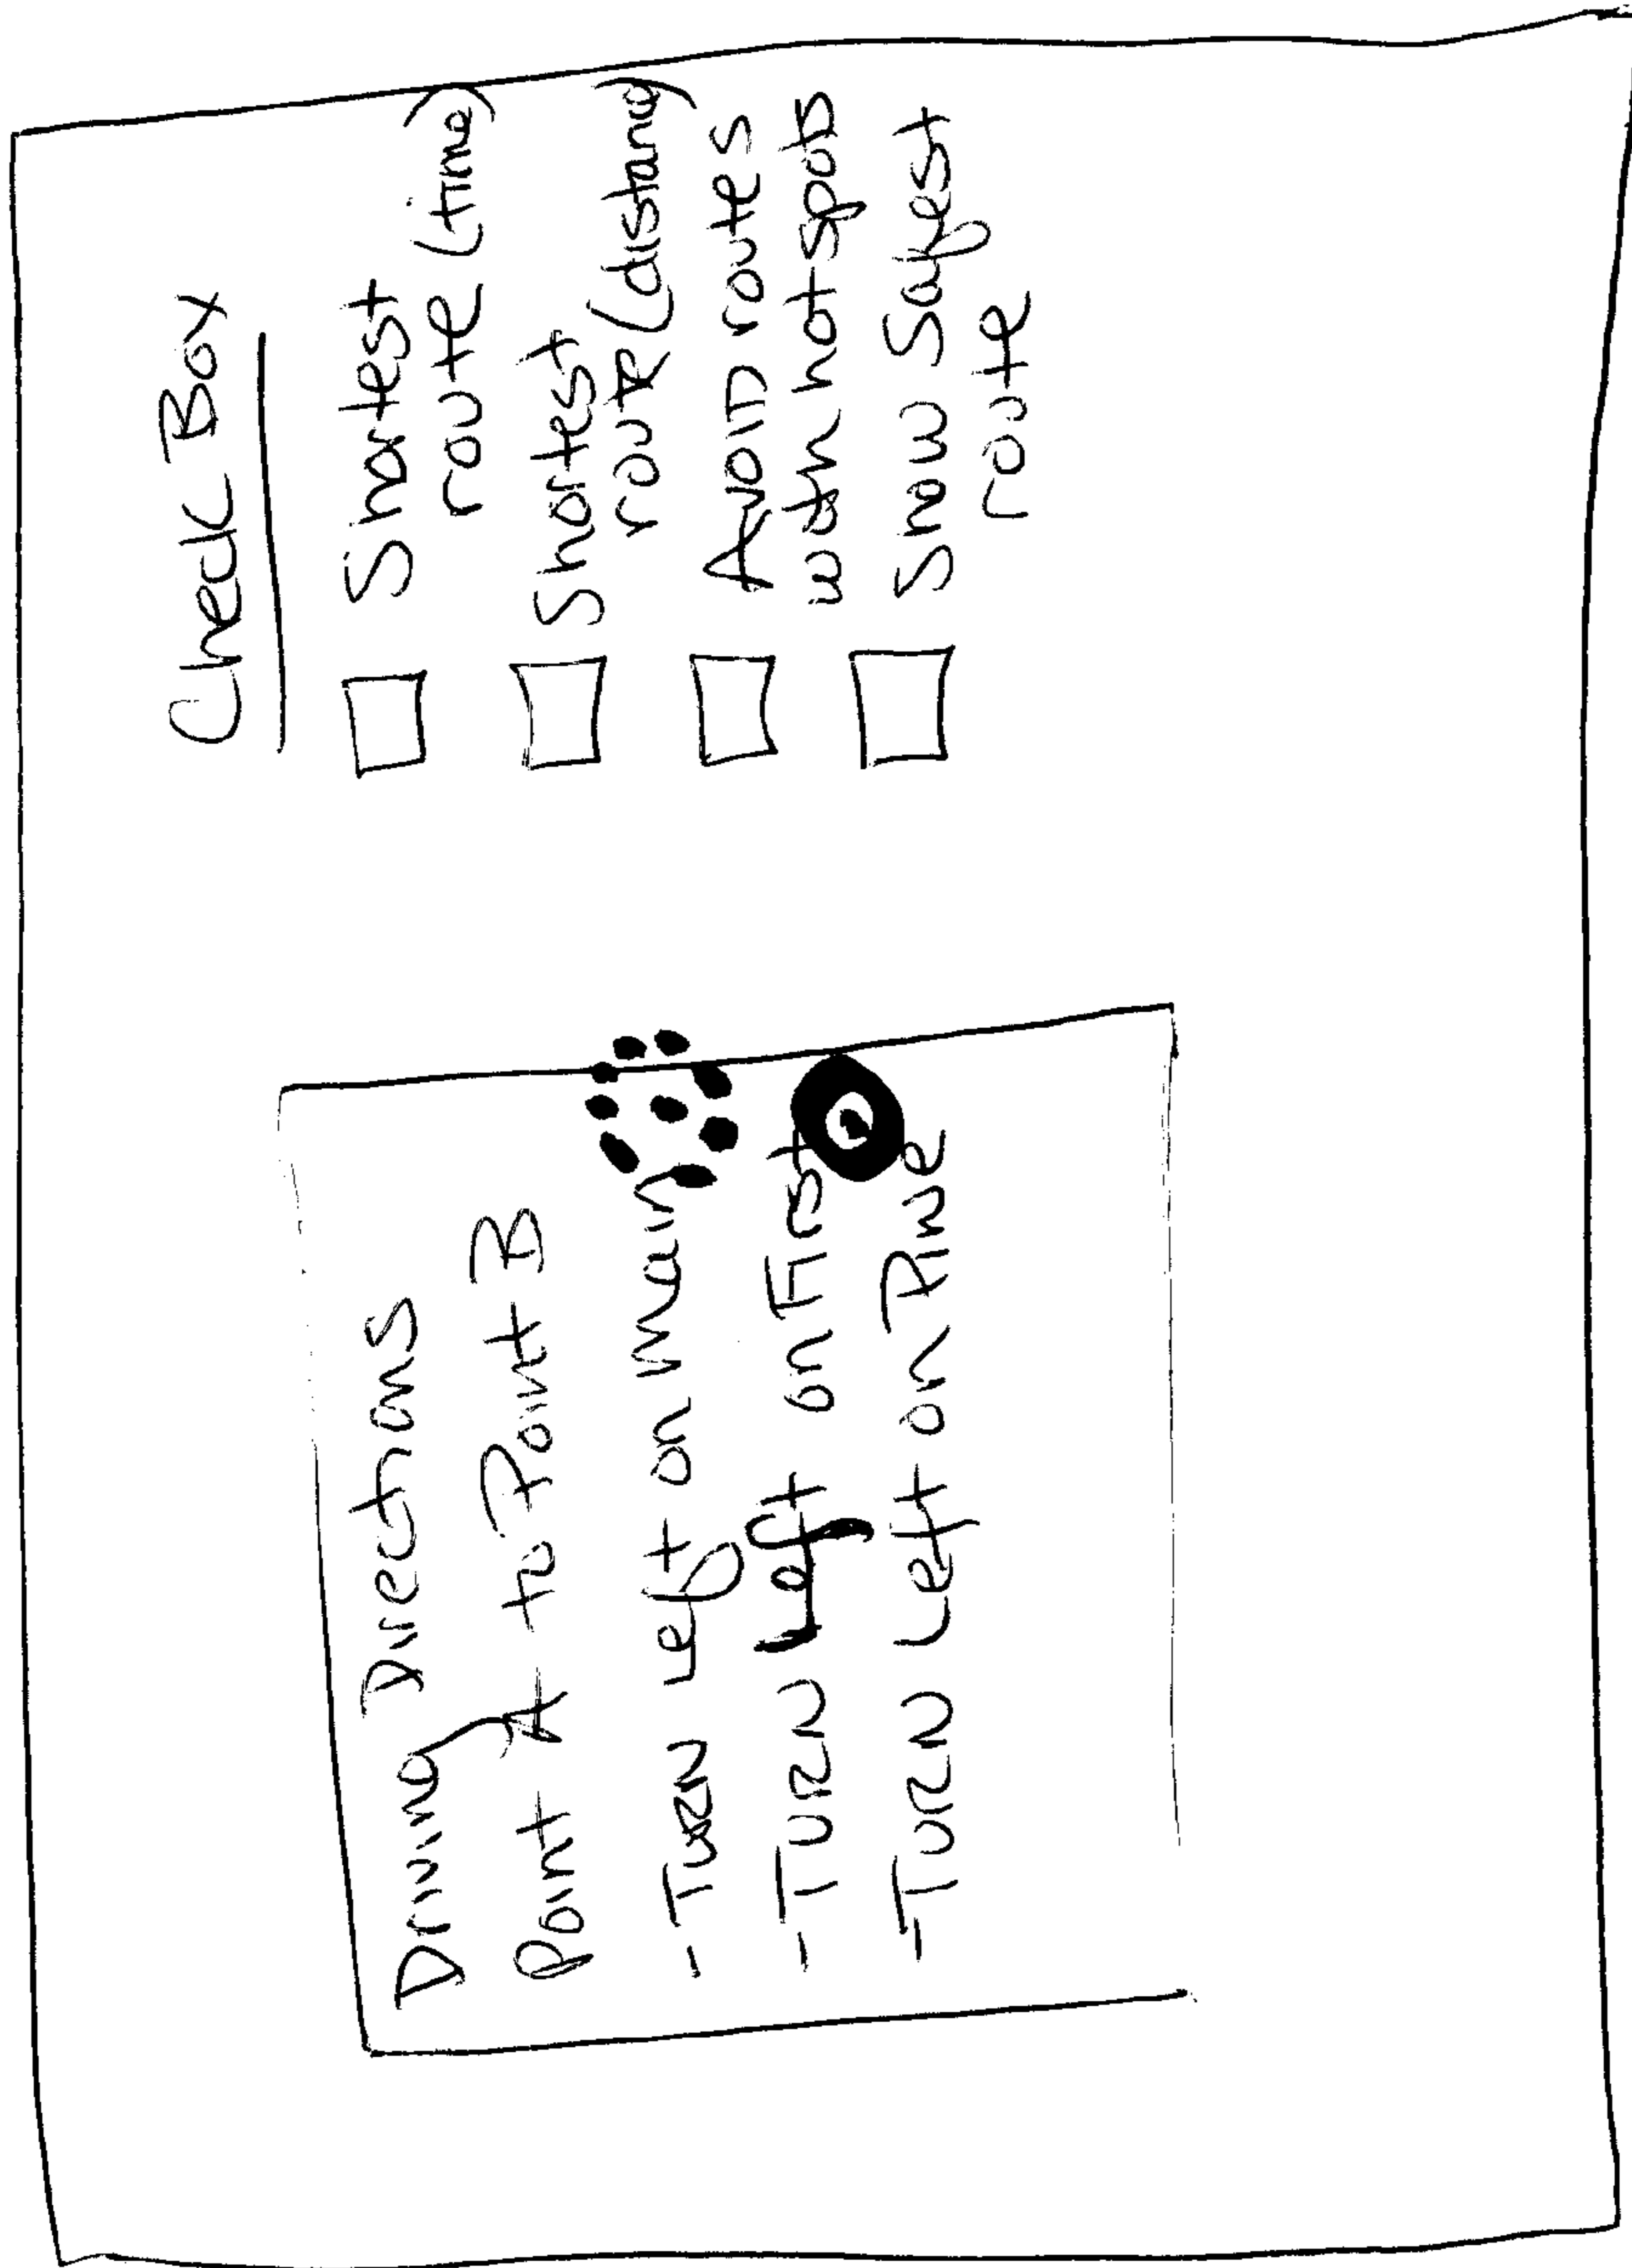 Driving Directions
Point A to Point B
- TURN Left on Main
- TURN Left on First
- TURN Left on Pine
Check Box
Shortest
route (time)
Shortest
route (distance)
AVOID routes
with hot spots
Show Safest
route